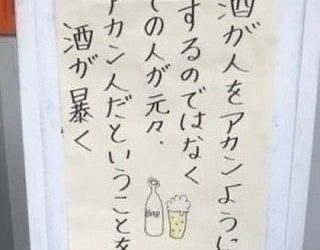 酒が人をアカンように
するのではなく
での人が元々、
アカン人だということを
酒が暴く
Beer